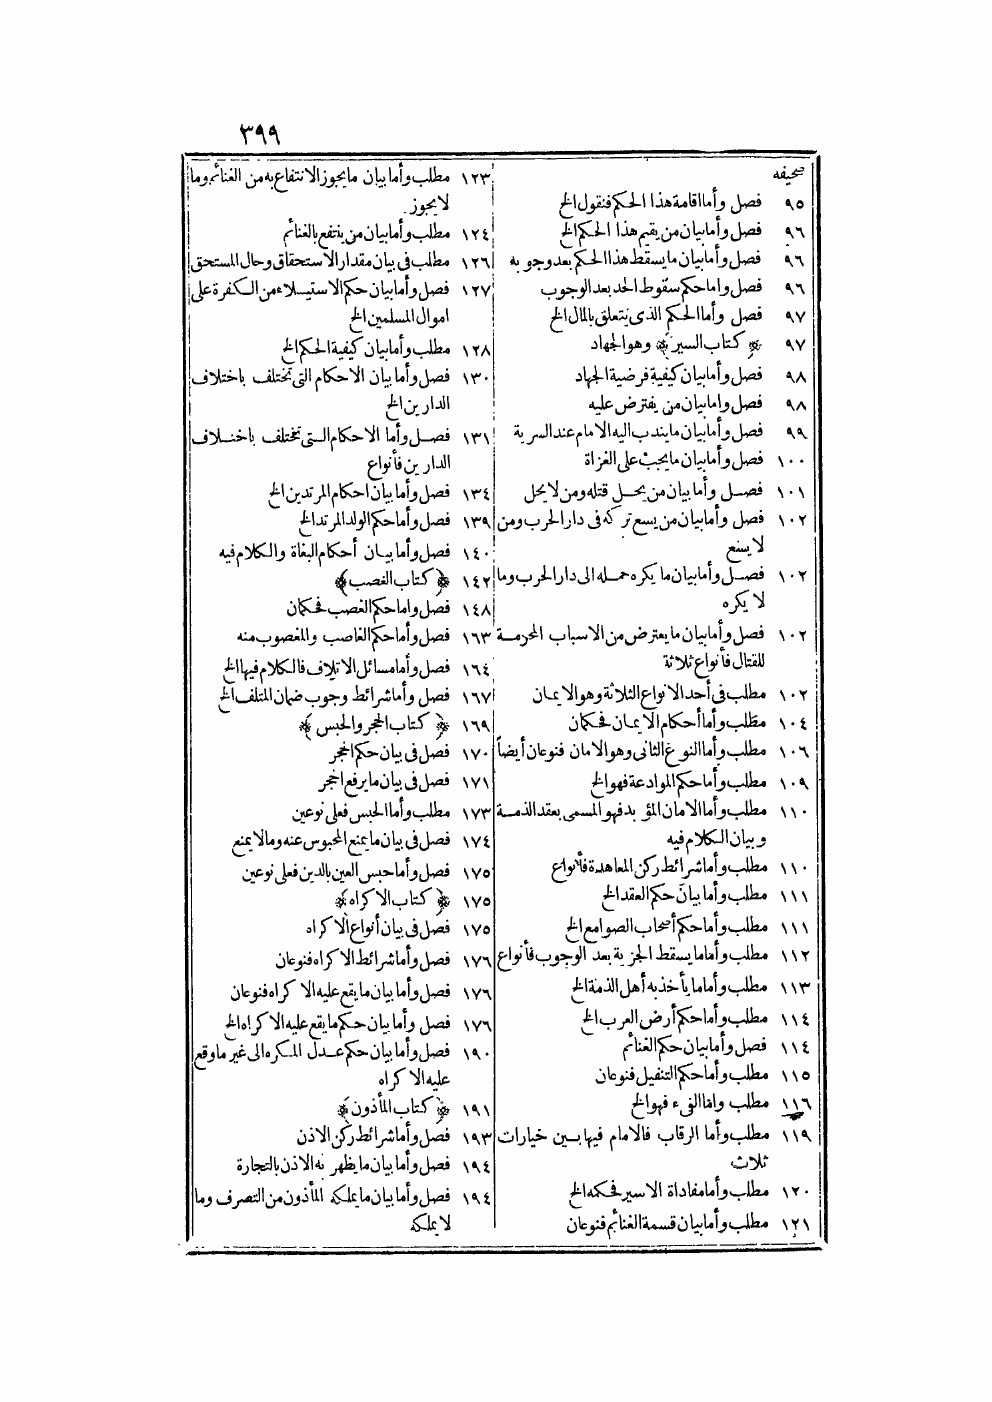 ٣٩٩
صحيفه
٩٥ فصل وأما اقامة هذا الحكم فنقول الخ
٩٦ فصل وأما بيان من يقيم هذا الحكم الخ
٩٦ فصل وأما بيان ما يسقط هذا الحكم بعد وجوبه
٩٦ فصل واما حكم سقوط الحد بعد الوجوب
٩٧ فصل وأما الحكم الذى يتعلق بالمال الخ
٩٧ ﴿ كتاب السير ﴾ وهو الجهاد
٩٨ فصل وأما بيان كيفية فرضية الجهاد
٩٨ فصل واما بيان من يفترض عليه
٩٩ فصل وأما بيان ما يندب اليه الامام عند السرية
١٠٠ فصل وأما بيان ما يجب على الغزاة
١٠١ فصل وأما بيان من يحل قتله ومن لا يحل
١٠٢ فصل وأما بيان من يسع تركه فى دار الحرب ومن
لا يسع
١٠٢ فصل وأما بيان ما يكره حمله الى دار الحرب وما
لا يكره
١٠٢ فصل وأما بيان ما يعترض من الاسباب المحرمة
للقتال فأنواع ثلاثة
١٠٢ مطلب فى أحد الانواع الثلاثة وهو الايمان
١٠٤ مطلب وأما أحكام الايمان فحكمان
١٠٦ مطلب وأما النوع الثانى وهو الامان فنوعان أيضاً
١٠٩ مطلب وأما حكم الموادعة فهو الخ
١١٠ مطلب وأما الامان المؤبد فهو المسمى بعقد الذمة
وبيان الكلام فيه
١١٠ مطلب وأما شرائط ركن المعاهدة فأنواع
١١١ مطلب وأما بيان حكم العقد الخ
١١١ مطلب وأما حكم أصحاب الصوامع الخ
١١٢ مطلب وأما ما يسقط الجزية بعد الوجوب فأنواع
١١٣ مطلب وأما ما يأخذ به أهل الذمة الخ
١١٤ مطلب وأما حكم أرض العرب الخ
١١٤ فصل وأما بيان حكم الغنائم
١١٥ مطلب وأما حكم التنفيل فنوعان
١١٦ مطلب واما الفىء فهو الخ
١١٩ مطلب وأما الرقاب فالامام فيها بين خيارات
ثلاث
١٢٠ مطلب وأما مفاداة الاسير فحكمه الخ
١٢١ مطلب وأما بيان قسمة الغنائم فنوعان
١٢٣ مطلب وأما بيان ما يجوز الانتفاع به من الغنائم وما
لا يجوز.
١٢٤ مطلب وأما بيان من ينتفع بالغنائم
١٢٦ مطلب فى بيان مقدار الاستحقاق وحال المستحق
١٢٧ فصل وأما بيان حكم الاستيلاء من الكفرة على
اموال المسلمين الخ
١٢٨ مطلب وأما بيان كيفية الحكم الخ
١٣٠ فصل وأما بيان الاحكام التى تختلف باختلاف
الدارين الخ
١٣١ فصل وأما الاحكام التى تختلف باختلاف
الدارين فأنواع
١٣٤ فصل وأما بيان احكام المرتدين الخ
١٣٩ فصل وأما حكم الولد المرتد الخ
١٤٠ فصل وأما بيان أحكام البغاة والكلام فيه
١٤٢ ﴿ كتاب الغصب ﴾
١٤٨ فصل واما حكم الغصب فحكمان
١٦٣ فصل وأما حكم الغاصب والمغصوب منه
١٦٤ فصل وأما مسائل الاتلاف فالكلام فيها الخ
١٦٧ فصل وأما شرائط وجوب ضمان المتلف الخ
١٦٩ ﴿ كتاب الحجر والحبس ﴾
١٧٠ فصل فى بيان حكم الحجر
١٧١ فصل فى بيان ما يرفع الحجر
١٧٣ مطلب وأما الحبس فعلى نوعين
١٧٤ فصل فى بيان ما يمنع المحبوس عنه وما لا يمنع
١٧٥ فصل وأما حبس العين بالدين فعلى نوعين
١٧٥ ﴿ كتاب الاكراه ﴾
١٧٥ فصل فى بيان أنواع الاكراه
١٧٦ فصل وأما شرائط الاكراه فنوعان
١٧٦ فصل وأما بيان ما يقع عليه الاكراه فنوعان
١٧٦ فصل وأما بيان حكم ما يقع عليه الاكراه الخ
١٩٠ فصل وأما بيان حكم عدل المكره الى غير ما وقع
عليه الاكراه
١٩١ ﴿ كتاب المأذون ﴾
١٩٣ فصل وأما شرائط ركن الاذن
١٩٤ فصل وأما بيان ما يظهر به الاذن بالتجارة
١٩٤ فصل وأما بيان ما يملكه المأذون من التصرف وما
لا يملكه